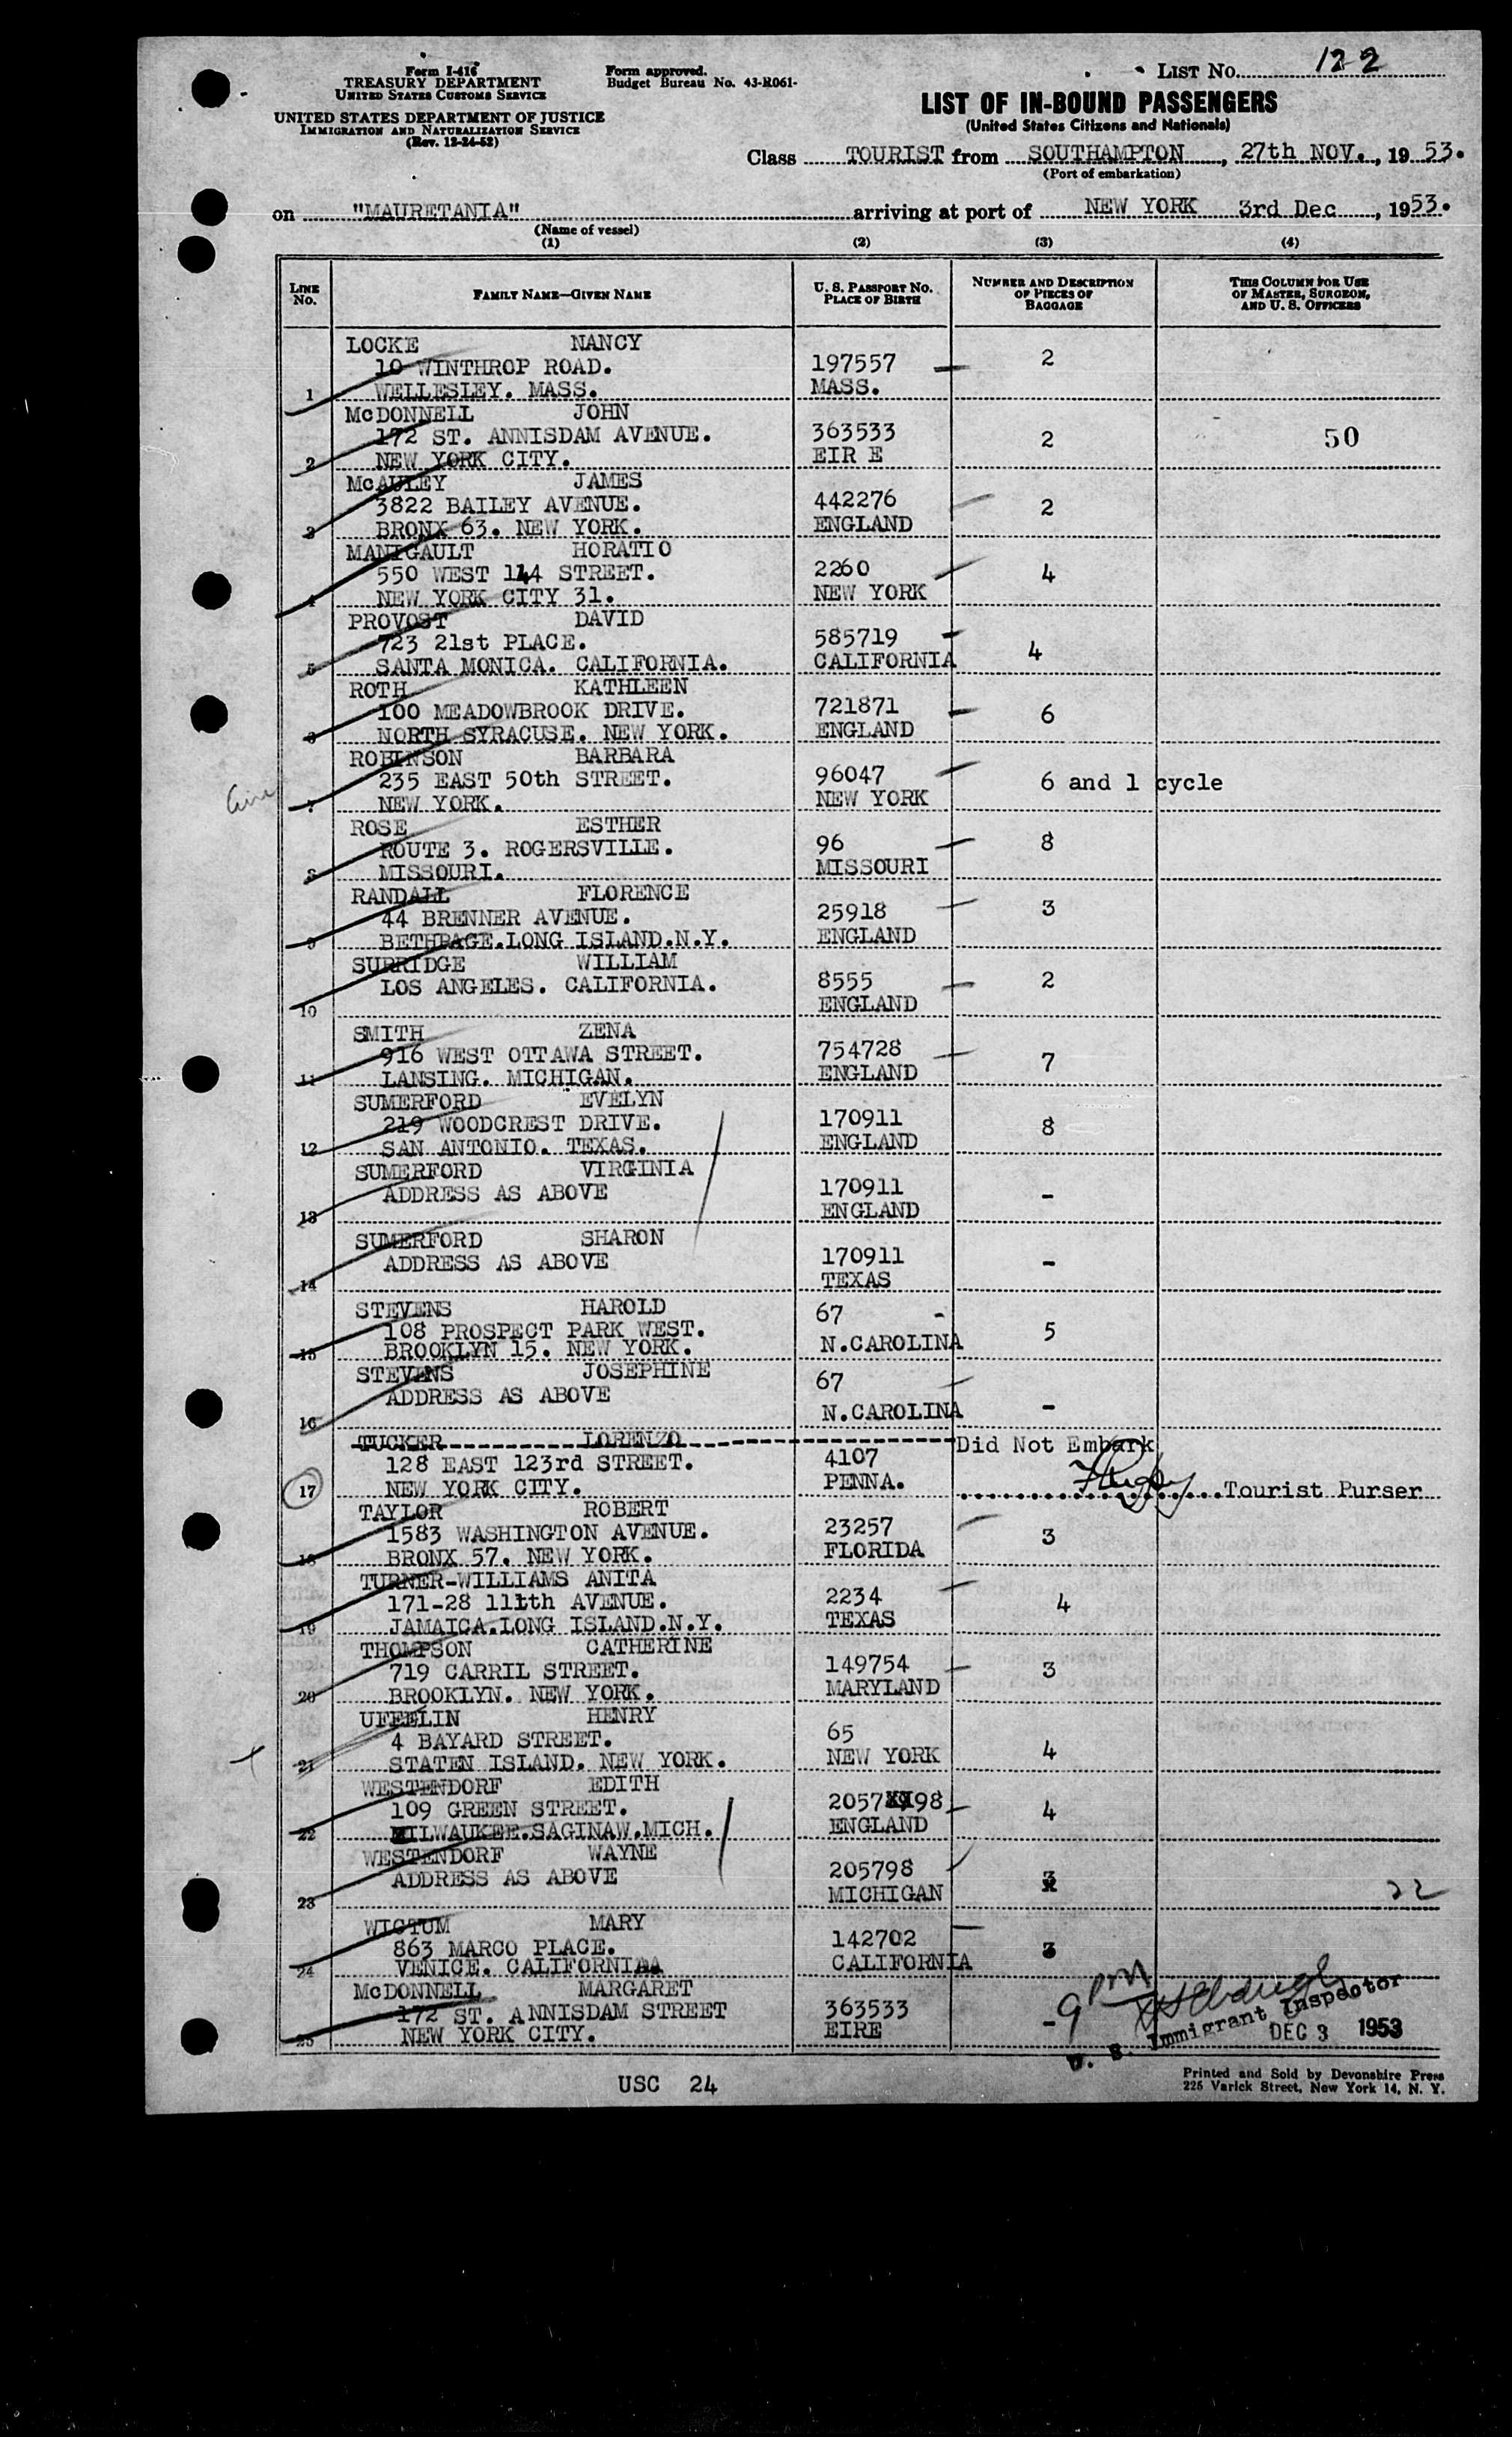 Form I-416
TREASURY DEPARTMENT
UNITED STATES CUSTOMS SERVICE
UNITED STATES DEPARTMENT OF JUSTICE
IMMIGRATION AND NATURALIZATION SERVICE
(Rev. 12-24-52)
Form approved.
Budget Bureau No. 43-R061-
LIST No. 122
LIST OF IN-BOUND PASSENGERS
(United States Citizens and Nationals)
Class TOURIST from SOUTHAMPTON, 27th NOV., 1953.
(Port of embarkation)
on "MAURETANIA" arriving at port of NEW YORK 3rd Dec, 1953.
(Name of vessel)
(1) (2) (3) (4)
LINE No. FAMILY NAME—GIVEN NAME U. S. PASSPORT NO. PLACE OF BIRTH NUMBER AND DESCRIPTION OF PIECES OF BAGGAGE THIS COLUMN FOR USE OF MASTER, SURGEON, AND U. S. OFFICERS
LOCKE NANCY
10 WINTHROP ROAD. 197557 2
1 WELLESLEY. MASS. MASS.
McDONNELL JOHN
172 ST. ANNISDAM AVENUE. 363533 2 50
2 NEW YORK CITY. EIR E
McAULEY JAMES
3822 BAILEY AVENUE. 442276 2
3 BRONX 63. NEW YORK. ENGLAND
MANIGAULT HORATIO
550 WEST 114 STREET. 2260 4
4 NEW YORK CITY 31. NEW YORK
PROVOST DAVID
723 21st PLACE. 585719 4
5 SANTA MONICA. CALIFORNIA. CALIFORNIA
ROTH KATHLEEN
100 MEADOWBROOK DRIVE. 721871 6
6 NORTH SYRACUSE. NEW YORK. ENGLAND
ROBINSON BARBARA
235 EAST 50th STREET. 96047 6 and 1 cycle
7 NEW YORK. NEW YORK
ROSE ESTHER
ROUTE 3. ROGERSVILLE. 96 8
8 MISSOURI. MISSOURI
RANDALL FLORENCE
44 BRENNER AVENUE. 25918 3
9 BETHPAGE.LONG ISLAND.N.Y. ENGLAND
SURRIDGE WILLIAM
LOS ANGELES. CALIFORNIA. 8555 2
10 ENGLAND
SMITH ZENA
916 WEST OTTAWA STREET. 754728 7
11 LANSING. MICHIGAN. ENGLAND
SUMERFORD EVELYN
219 WOODCREST DRIVE. 170911 8
12 SAN ANTONIO. TEXAS. ENGLAND
SUMERFORD VIRGINIA
ADDRESS AS ABOVE 170911 -
13 ENGLAND
SUMERFORD SHARON
ADDRESS AS ABOVE 170911 -
14 TEXAS
STEVENS HAROLD 67
108 PROSPECT PARK WEST. 5
15 BROOKLYN 15. NEW YORK. N.CAROLINA
STEVENS JOSEPHINE 67
ADDRESS AS ABOVE -
16 N.CAROLINA
TUCKER LORENZO Did Not Embark
128 EAST 123rd STREET. 4107
17 NEW YORK CITY. PENNA. Tourist Purser
TAYLOR ROBERT
1583 WASHINGTON AVENUE. 23257 3
18 BRONX 57. NEW YORK. FLORIDA
TURNER-WILLIAMS ANITA
171-28 111th AVENUE. 2234 4
19 JAMAICA.LONG ISLAND.N.Y. TEXAS
THOMPSON CATHERINE
719 CARRIL STREET. 149754 3
20 BROOKLYN. NEW YORK. MARYLAND
UFFELIN HENRY
4 BAYARD STREET. 65 4
21 STATEN ISLAND. NEW YORK. NEW YORK
WESTENDORF EDITH
109 GREEN STREET. 205798 4
22 MILWAUKEE.SAGINAW.MICH. ENGLAND
WESTENDORF WAYNE
ADDRESS AS ABOVE 205798 3
23 MICHIGAN 22
WICTUM MARY
863 MARCO PLACE. 142702 3
24 VENICE. CALIFORNIA CALIFORNIA
McDONNELL MARGARET 9 PM
172 ST. ANNISDAM STREET 363533 -
25 NEW YORK CITY. EIRE
U. S. Immigrant Inspector
DEC 3 1953
USC 24
Printed and Sold by Devonshire Press
225 Varick Street, New York 14, N. Y.